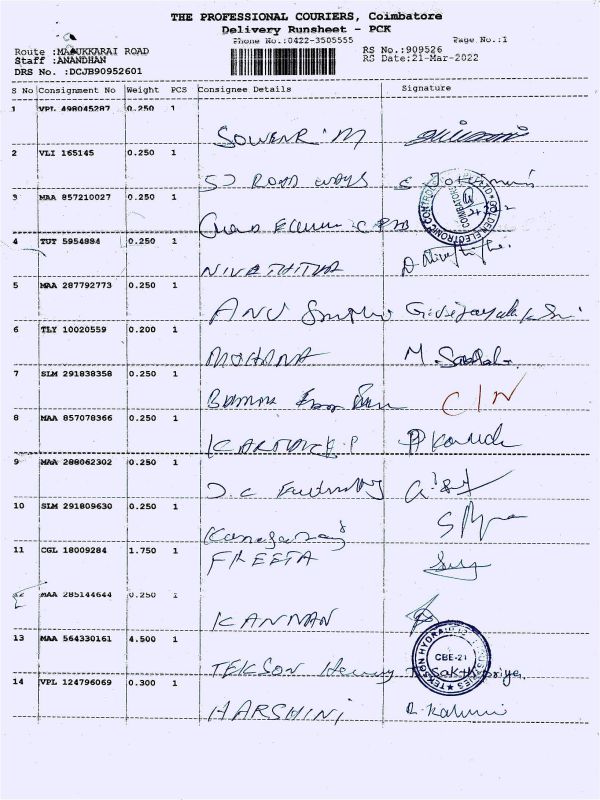 THE PROFESSIONAL COURIERS, Coimbatore
Delivery Runsheet - PCK
Phone No.:0422-3505555 Page No.:1
Route :MADUKKARAI ROAD RS No.:909526
Staff :ANANDHAN RS Date:21-Mar-2022
DRS No. :DCJB90952601
S No Consignment No Weight PCS Consignee Details Signature
1 VPL 498045287 0.250 1
2 VLI 165145 0.250 1
SJ ROAD ways
3 MAA 857210027 0.250 1
GOLDEN ELECTRONIC CONTROLS COIMBATORE
4 TUT 5954884 0.250 1
NIVETHITHA
5 MAA 287792773 0.250 1
ANU
6 TLY 10020559 0.200 1
MOHANA M.
7 SLM 291838358 0.250 1
C/N
8 MAA 857078366 0.250 1
KARTHICK P
9 MAA 288062302 0.250 1
D.C
10 SLM 291809630 0.250 1
Kanagaraj
11 CGL 18009284 1.750 1
FREETA
MAA 285144644 0.250 1
KANNAN
13 MAA 564330161 4.500 1
TEKSON Sakthipriya
TEKSON HYDRAULIC INDUSTRIES CBE-21
14 VPL 124796069 0.300 1
HARSHINI